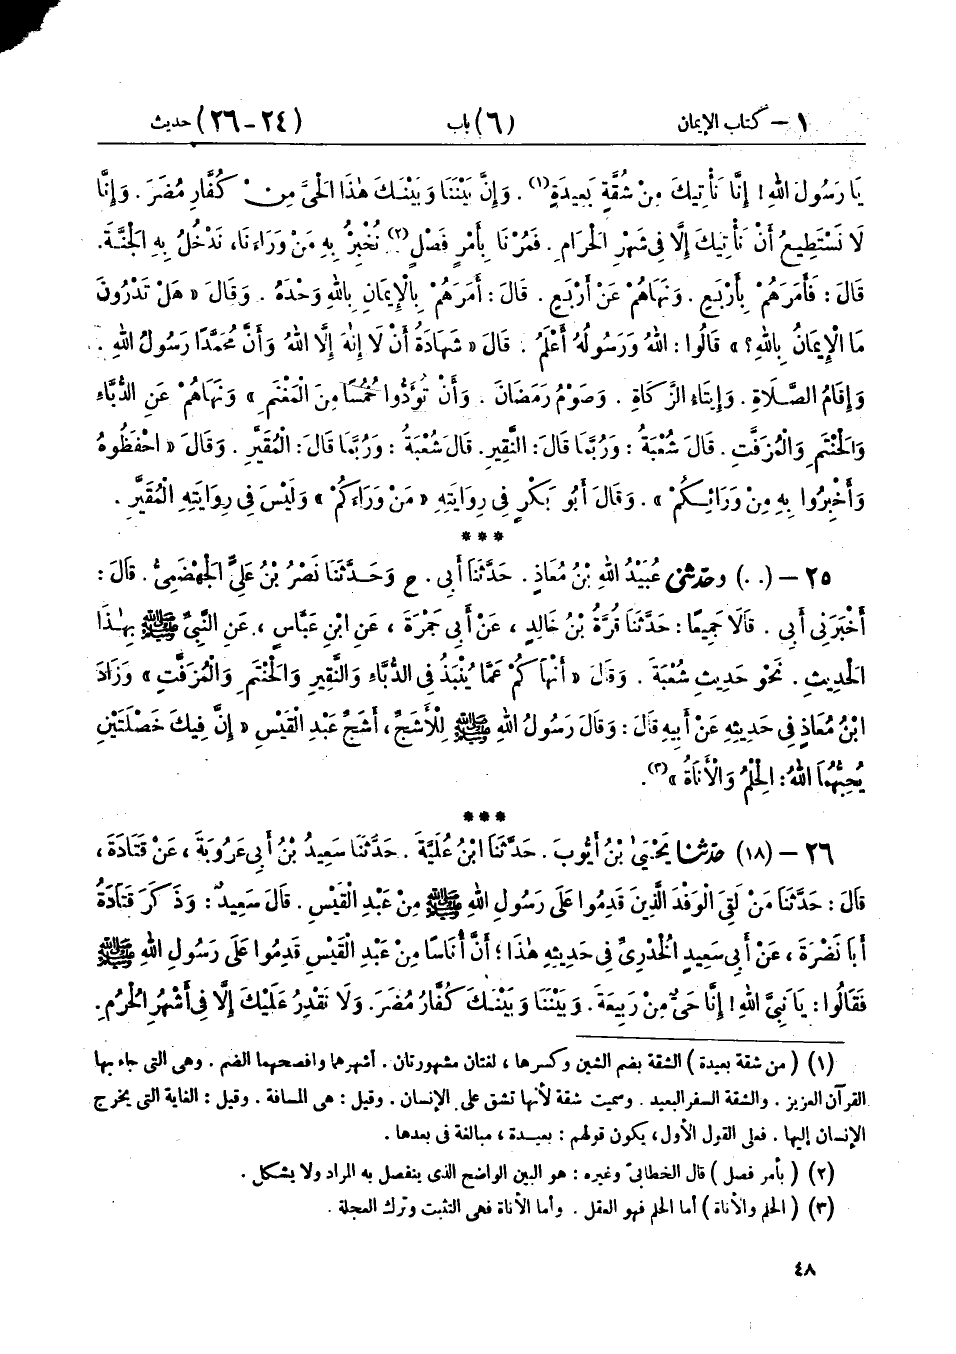 ١ – كتاب الإيمان (٦) باب (٢٤ - ٢٦) حديث
يَا رَسُولَ اللهِ! إِنَّا نَأْتِيكَ مِنْ شُقَّةٍ بَعِيدَةٍ(١). وَإِنَّ بَيْنَنَا وَبَيْنَكَ هٰذَا الْحَيَّ مِنْ كُفَّارِ مُضَرَ. وَإِنَّا
لَا نَسْتَطِيعُ أَنْ نَأْتِيَكَ إِلَّا فِي شَهْرِ الْحَرَامِ. فَمُرْنَا بِأَمْرٍ فَصْلٍ(٢) نُخْبِرُ بِهِ مَنْ وَرَاءَنَا، نَدْخُلُ بِهِ الْجَنَّةَ.
قَالَ: فَأَمَرَهُمْ بِأَرْبَعٍ. وَنَهَاهُمْ عَنْ أَرْبَعٍ. قَالَ: أَمَرَهُمْ بِالْإِيمَانِ بِاللهِ وَحْدَهُ. وَقَالَ «هَلْ تَدْرُونَ
مَا الْإِيمَانُ بِاللهِ؟» قَالُوا: اللهُ وَرَسُولُهُ أَعْلَمُ. قَالَ «شَهَادَةُ أَنْ لَا إِلٰهَ إِلَّا اللهُ وَأَنَّ مُحَمَّدًا رَسُولُ اللهِ.
وَإِقَامُ الصَّلَاةِ. وَإِيتَاءِ الزَّكَاةِ. وَصَوْمُ رَمَضَانَ. وَأَنْ تُؤَدُّوا خُمُسًا مِنَ الْمَغْنَمِ» وَنَهَاهُمْ عَنِ الدُّبَّاءِ
وَالْحَنْتَمِ وَالْمُزَفَّتِ. قَالَ شُعْبَةُ: وَرُبَّمَا قَالَ: النَّقِيرِ. قَالَ شُعْبَةُ: وَرُبَّمَا قَالَ: الْمُقَيَّرِ. وَقَالَ «احْفَظُوهُ
وَأَخْبِرُوا بِهِ مِنْ وَرَائِكُمْ». وَقَالَ أَبُو بَكْرٍ فِي رِوَايَتِهِ «مَنْ وَرَاءَكُمْ» وَلَيْسَ فِي رِوَايَتِهِ الْمُقَيَّرِ.
***
٢٥ – (..) وحدثني عُبَيْدُ اللهِ بْنُ مُعَاذٍ. حَدَّثَنَا أَبِي. ح وَحَدَّثَنَا نَصْرُ بْنُ عَلِيٍّ الْجَهْضَمِيُّ. قَالَ:
أَخْبَرَنِي أَبِي. قَالَا جَمِيعًا: حَدَّثَنَا قُرَّةُ بْنُ خَالِدٍ، عَنْ أَبِي جَمْرَةَ، عَنِ ابْنِ عَبَّاسٍ، عَنِ النَّبِيِّ ﷺ بِهٰذَا
الْحَدِيثِ. نَحْوَ حَدِيثِ شُعْبَةَ. وَقَالَ «أَنْهَاكُمْ عَمَّا يُنْبَذُ فِي الدُّبَّاءِ وَالنَّقِيرِ وَالْحَنْتَمِ وَالْمُزَفَّتِ» وَزَادَ
ابْنُ مُعَاذٍ فِي حَدِيثِهِ عَنْ أَبِيهِ قَالَ: وَقَالَ رَسُولُ اللهِ ﷺ لِلْأَشَجِّ، أَشَجِّ عَبْدِ الْقَيْسِ «إِنَّ فِيكَ خَصْلَتَيْنِ
يُحِبُّهُمَا اللهُ: الْحِلْمُ وَالْأَنَاةُ»(٣).
***
٢٦ – (١٨) حدثنا يَحْيَىٰ بْنُ أَيُّوبَ. حَدَّثَنَا ابْنُ عُلَيَّةَ. حَدَّثَنَا سَعِيدُ بْنُ أَبِي عَرُوبَةَ، عَنْ قَتَادَةَ،
قَالَ: حَدَّثَنَا مَنْ لَقِيَ الْوَفْدَ الَّذِينَ قَدِمُوا عَلَى رَسُولِ اللهِ ﷺ مِنْ عَبْدِ الْقَيْسِ. قَالَ سَعِيدٌ: وَذَكَرَ قَتَادَةُ
أَبَا نَضْرَةَ، عَنْ أَبِي سَعِيدٍ الْخُدْرِيِّ فِي حَدِيثِهِ هٰذَا؛ أَنَّ أُنَاسًا مِنْ عَبْدِ الْقَيْسِ قَدِمُوا عَلَى رَسُولِ اللهِ ﷺ
فَقَالُوا: يَا نَبِيَّ اللهِ! إِنَّا حَيٌّ مِنْ رَبِيعَةَ. وَبَيْنَنَا وَبَيْنَكَ كُفَّارُ مُضَرَ. وَلَا نَقْدِرُ عَلَيْكَ إِلَّا فِي أَشْهُرِ الْحُرُمِ.
(١) (من شقة بعيدة) الشقة بضم الشين وكسرها، لغتان مشهورتان. أشهرها وافصحهما الضم. وهى التى جاء بها
القرآن العزيز. والشقة السفر البعيد. وسميت شقة لأنها تشق على الإنسان. وقيل: هى المسافة. وقيل: الغاية التى يخرج
الإنسان إليها. فعلى القول الأول، يكون قولهم: بعيدة، مبالغة فى بعدها.
(٢) (بأمر فصل) قال الخطابىّ وغيره: هو البين الواضح الذى ينفصل به المراد ولا يشكل.
(٣) (الحلم والأناة) أما الحلم فهو العقل. وأما الأناة فهى التثبت وترك العجلة.
٤٨